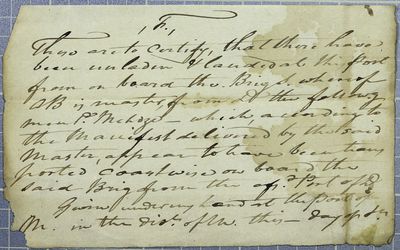 "F"
These are to Certify, that there have
been unladen & landed at the Port
from on board the Brig S. whereof
AB is master, from A the following
men Pr Mchdze - which, according to
the Manifest delivered by the said
Master, appear to have been trans
ported coastwise on board the
said Brig from the Port of
Given under my hand at the Port of
M. in the Dis. of this - day of